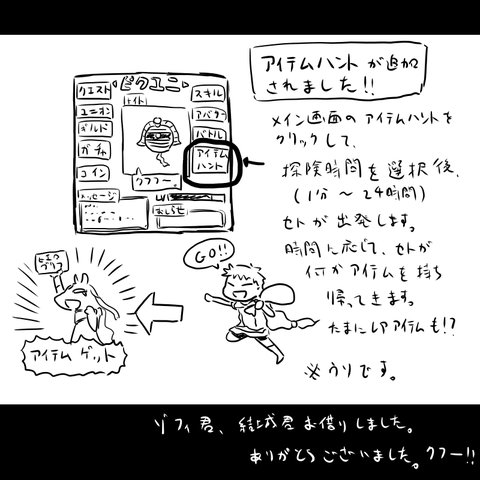 アイテムハントが追加
されました!!
ピクユニ
クエスト
ユニオン
ギルド
ガチャ
コイン
メッセージ
スキル
アバター
バトル
アイテム
ハント
クフフー。
おしらせ
メイン画面のアイテムハントを
クリックして、
探険時間を選択後、
(1分〜24時間)
セトが出発します。
時間に応じて、セトが
何かアイテムを持ち
帰ってきます。
たまにレアアイテムも!?
※うりです。
GO!!
アイテムゲット
ゾフィ君、結城君お借りしました。
ありがとうございました。クフー!!